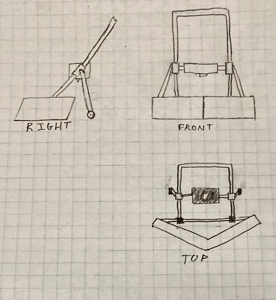 RIGHT
FRONT
TOP